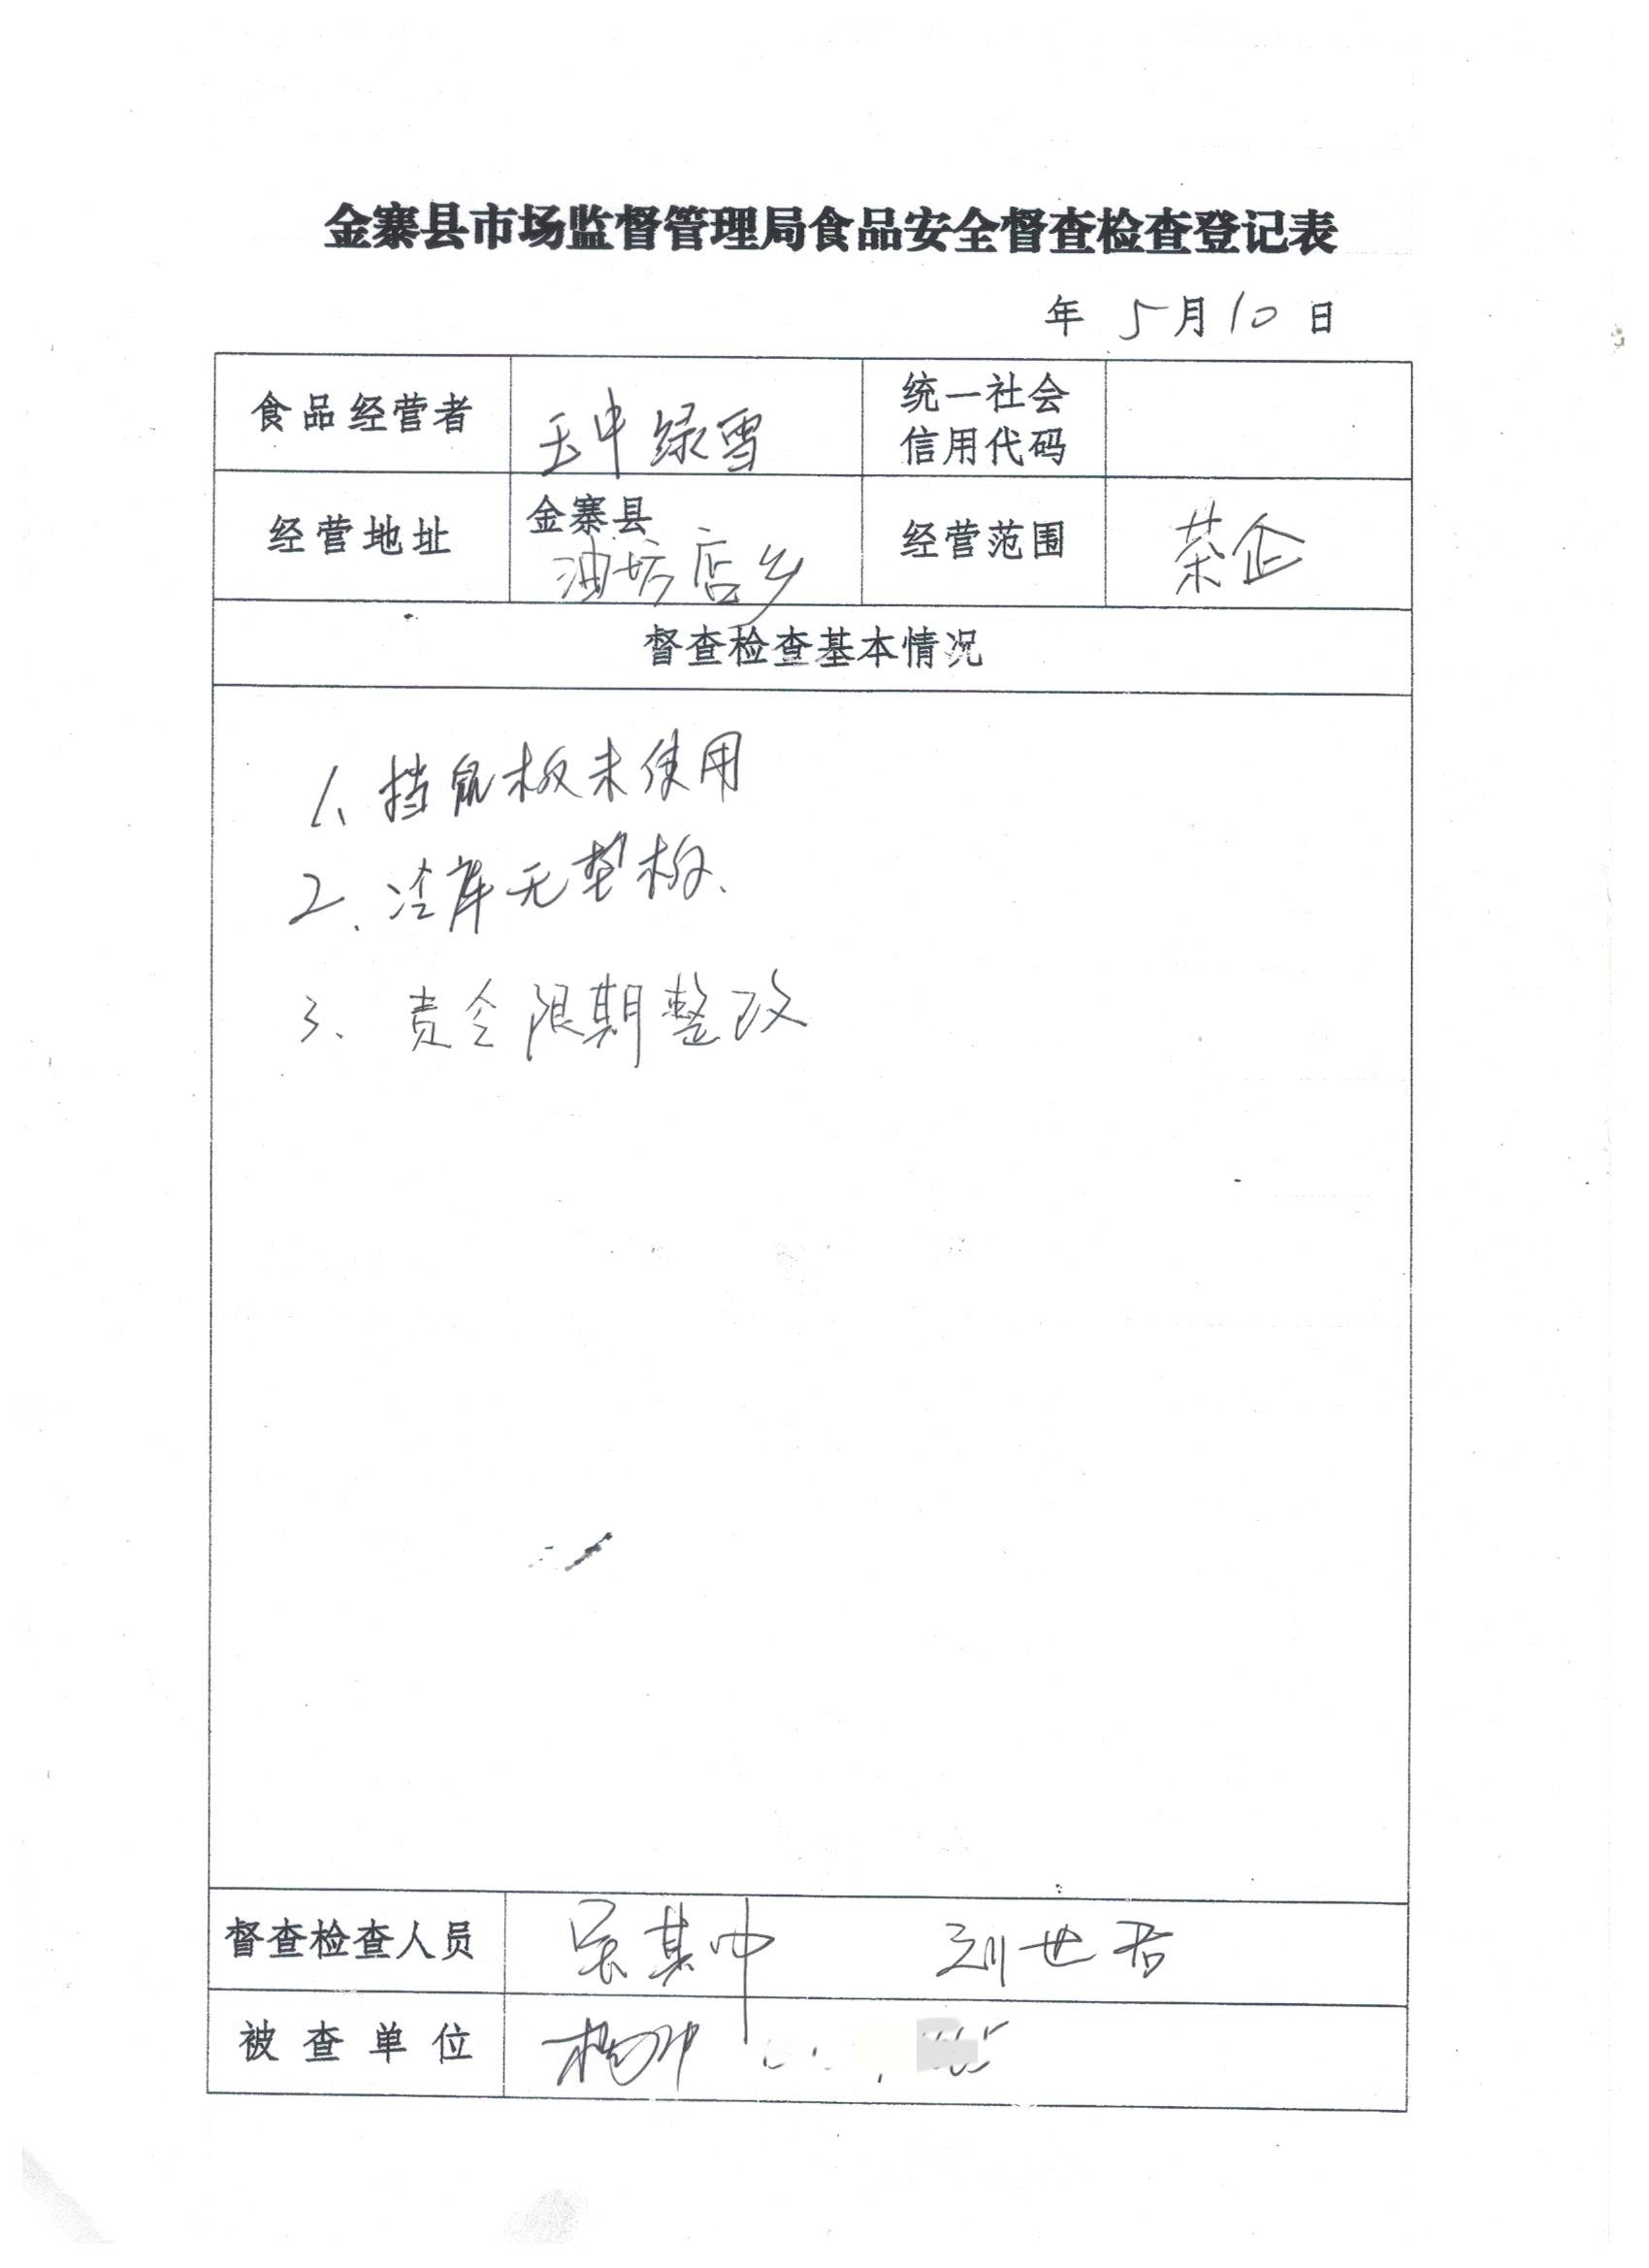 金寨县市场监督管理局食品安全督查检查登记表
年 5月10日
食品经营者
玉中绿雪
统一社会
信用代码
经营地址
金寨县
油坊店乡
经营范围
茶企
督查检查基本情况
1、挡鼠板未使用
2、冷库无垫板、
3、责令限期整改
督查检查人员
吴其中 刘世君
被查单位
杨中